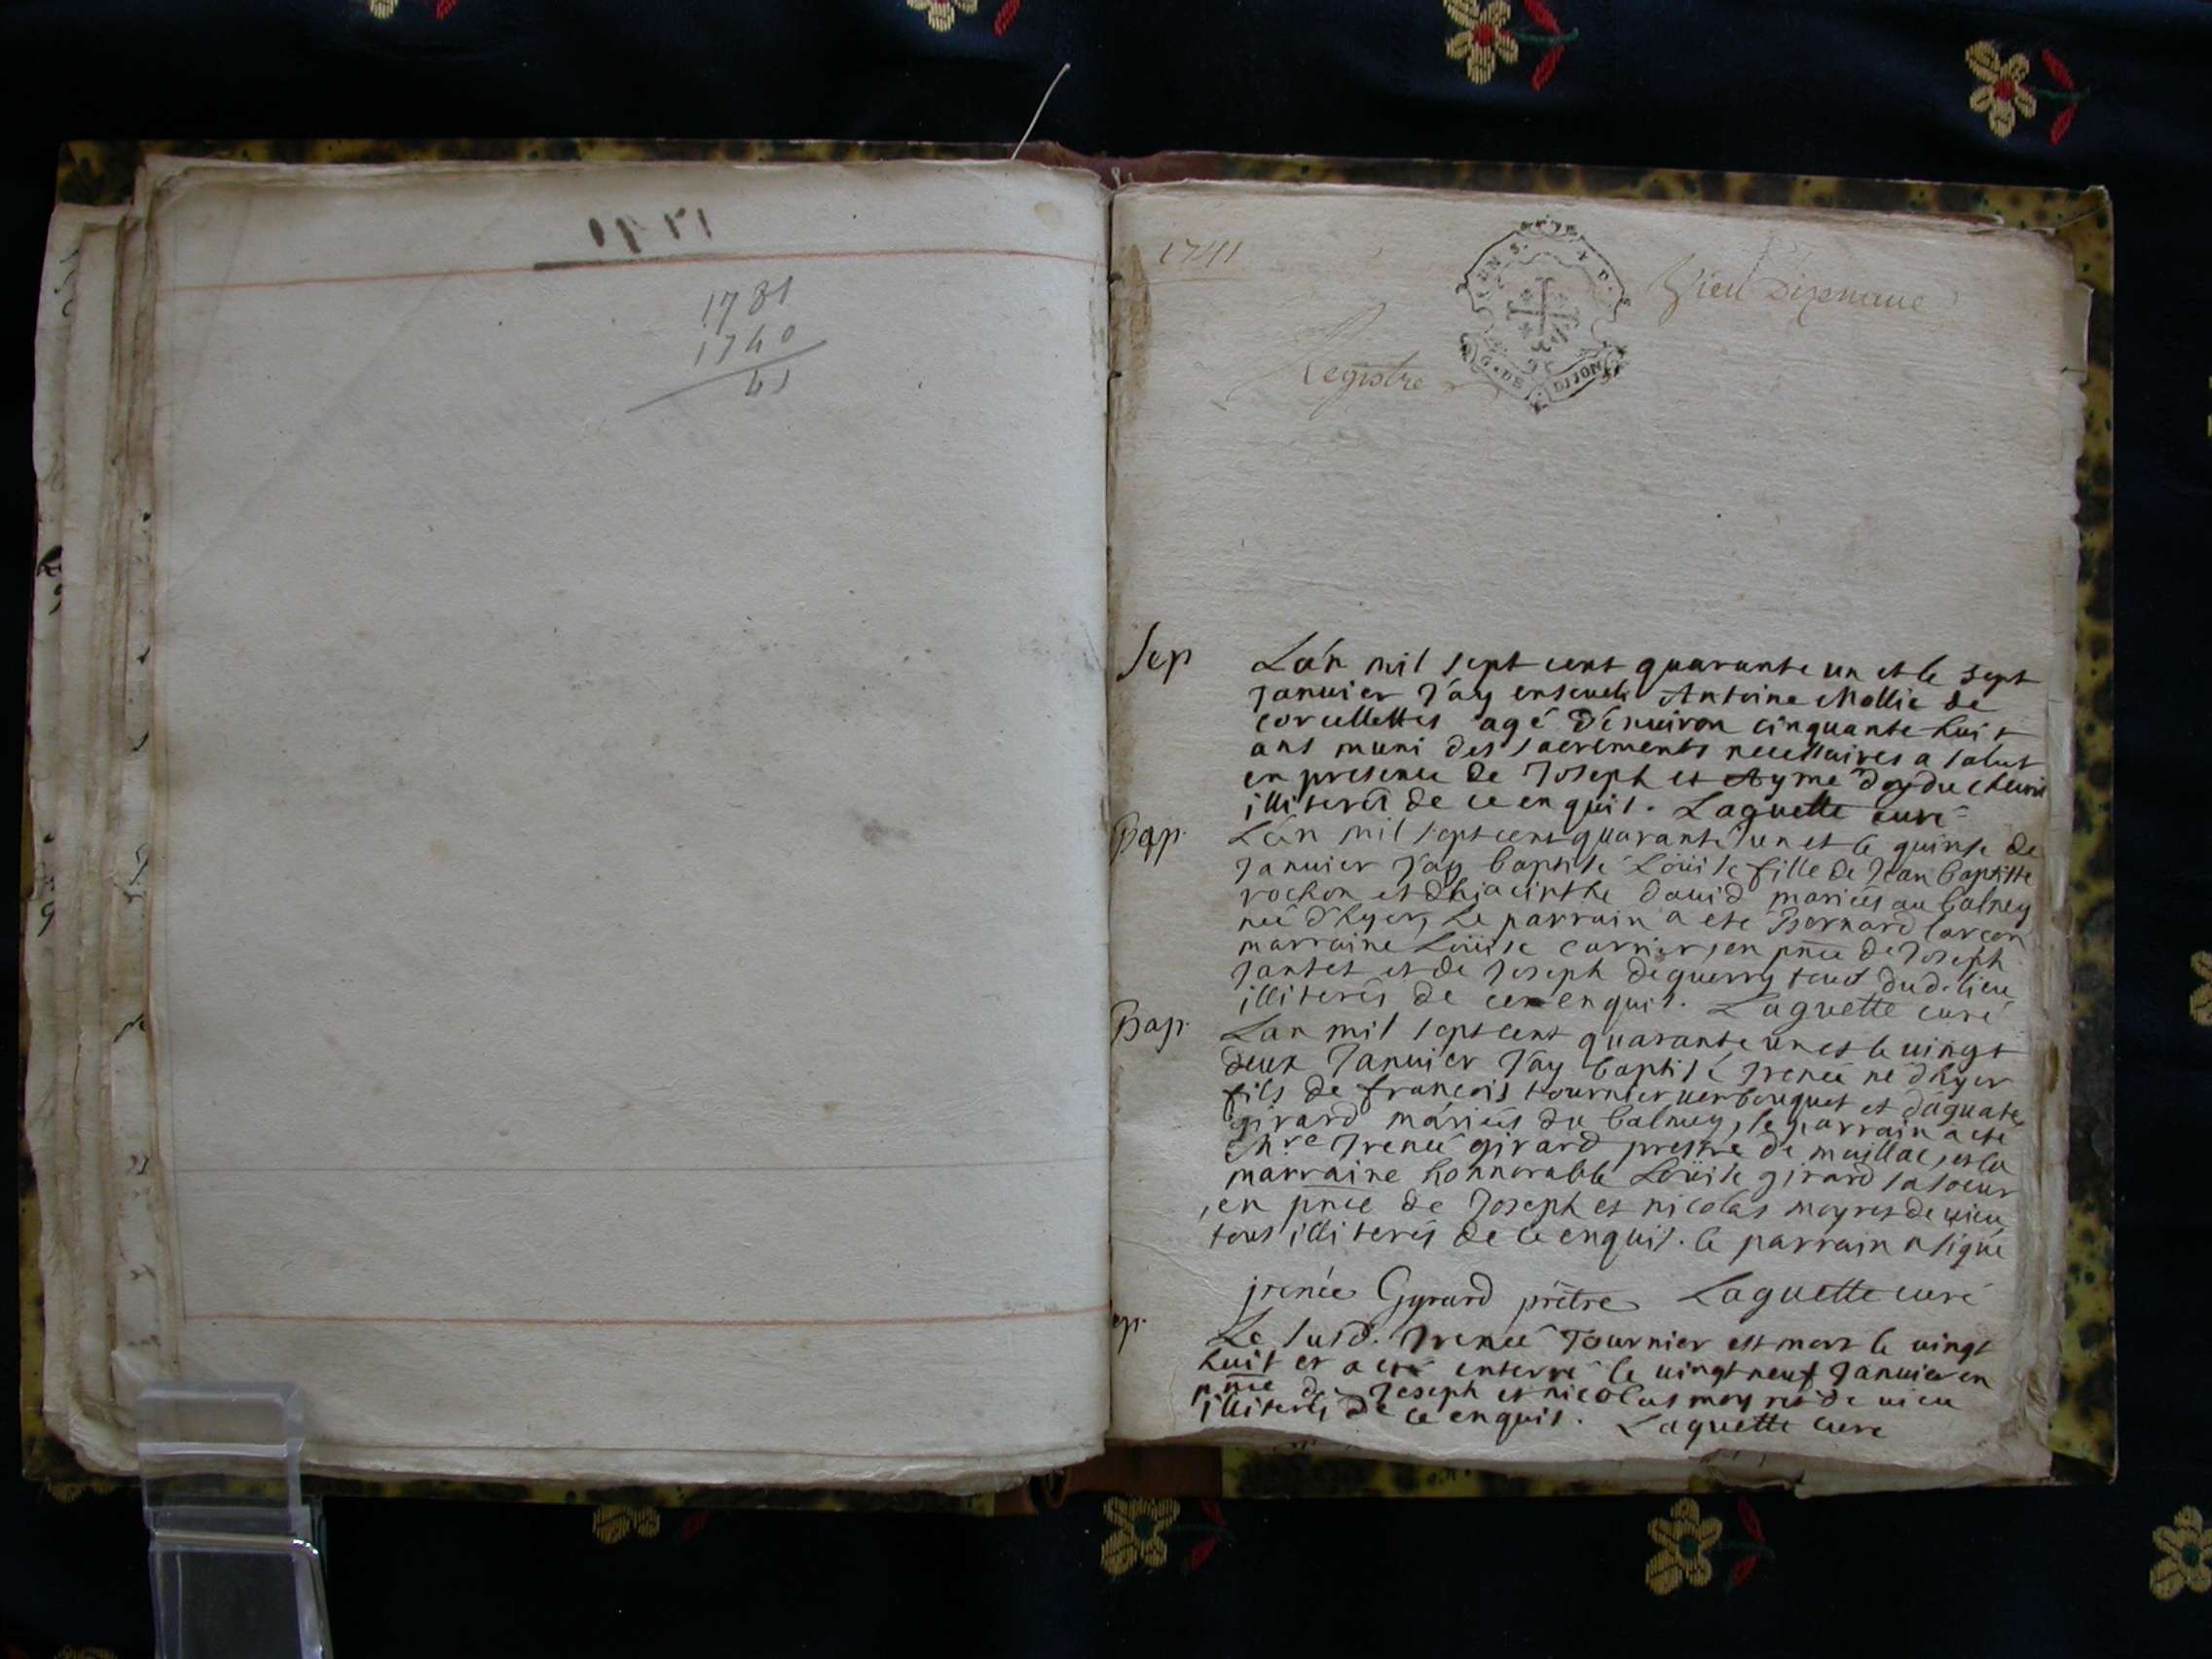 1781
1740
41
1741
Vieu Dizenaue
DIJON
Registre
Sep
Lan mil sept cent quarante un et le sept
Januier J'ay enseueli Antoine Mollie de
corcellettes agé d'énuiron cinquante huit
ans muni des sacrements necessaires a salut
en presence de Joseph et Ayme
illiterés de ce enquis. Laguette curé
Bap.
Lan mil sept cent quarante un et le quinse de
Januier J'ay baptisé Loüise fille de Jean baptiste
rochon et dhiacinthe dauid mariés au balmey
neé d'hyer, Le parrain a eté Bernard larçon
marraine Loüise carrier, en pnce de Joseph
Jantet et de Joseph deguerry tous dud. lieu
illiterés de ce enquis. Laguette curé
Bap.
Lan mil sept cent quarante un et le uingt
deux Januier J'ay baptisé Jreneé né d'hyer
fils de françois tournier uerbouquet et d'aguate
girard mariés du balmey, le parrain a eté
Mre Jreneé girard prestre de maillac, et la
marraine honnorable Loüise girard sa soeur
en pnce de Joseph et nicolas moyret de uieu
tous illiterés de ce enquis. le parrain a signé
jrenée Gyrard prêtre Laguette curé
ep.
Le susd. Jreneé Tournier est mort le uingt
huit et a eté enterré le uingt neuf Januier en
pnce de Joseph et nicolas moyret de uieu
illiterés de ce enquis. Laguette cure